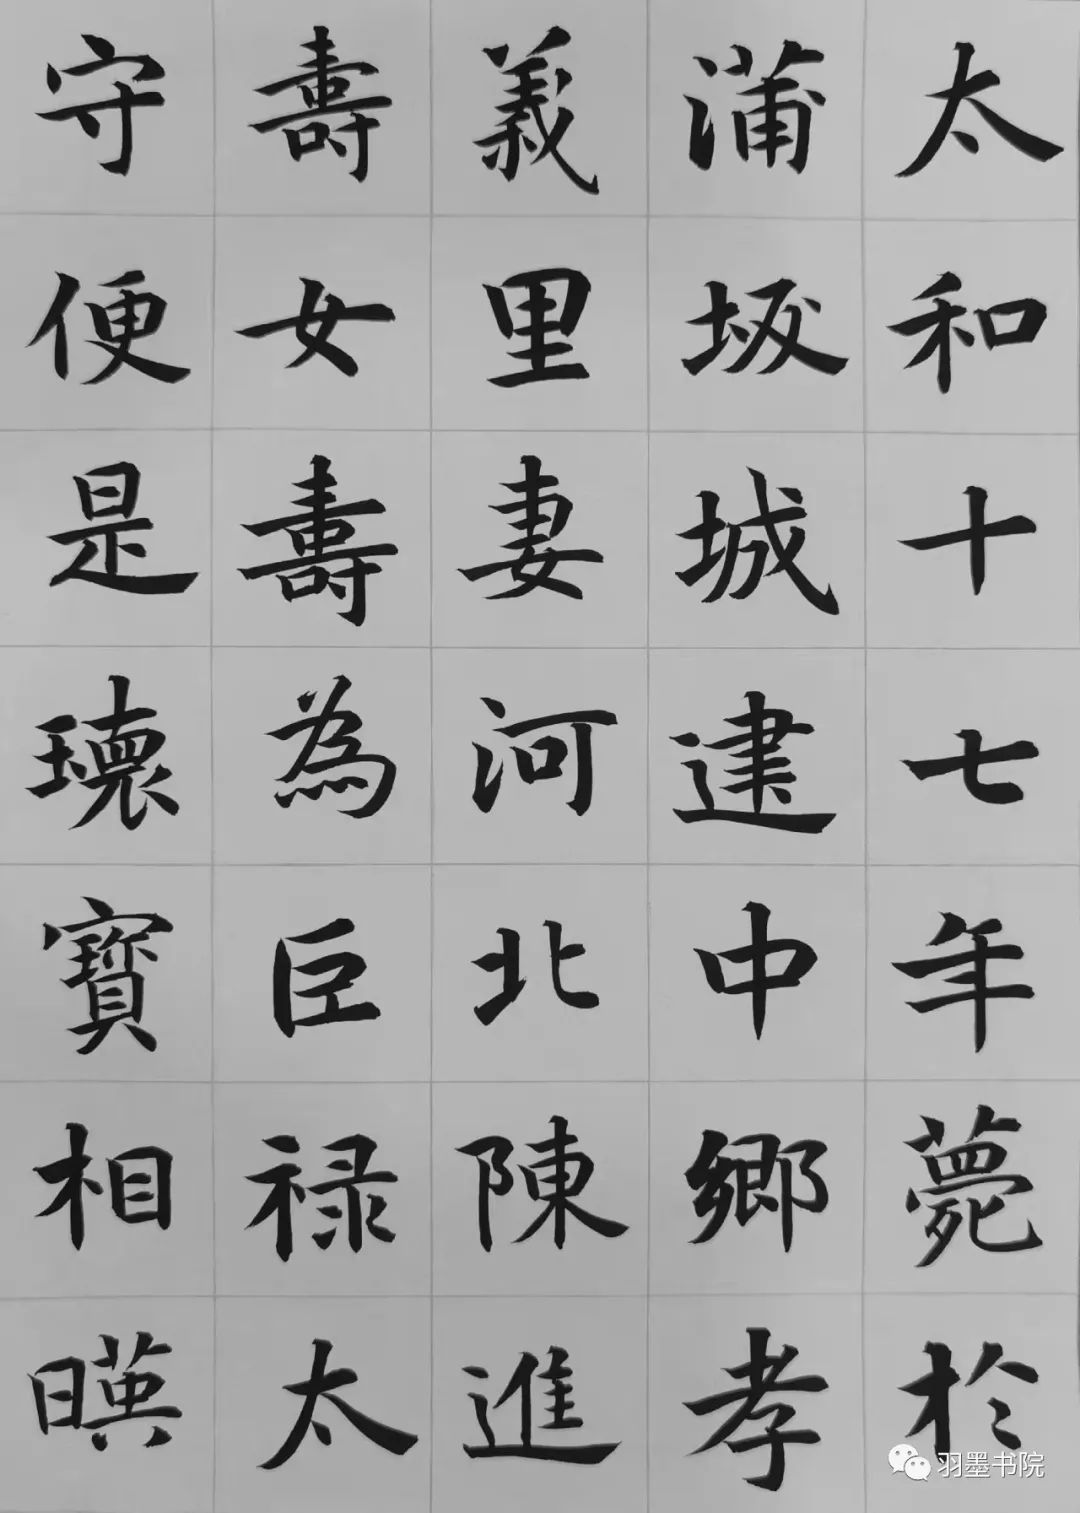 太和十七年薨於
蒲坂城建中鄉孝
義里妻河北陳進
壽女壽為巨祿太
守便是瓌寶相暎
羽墨书院